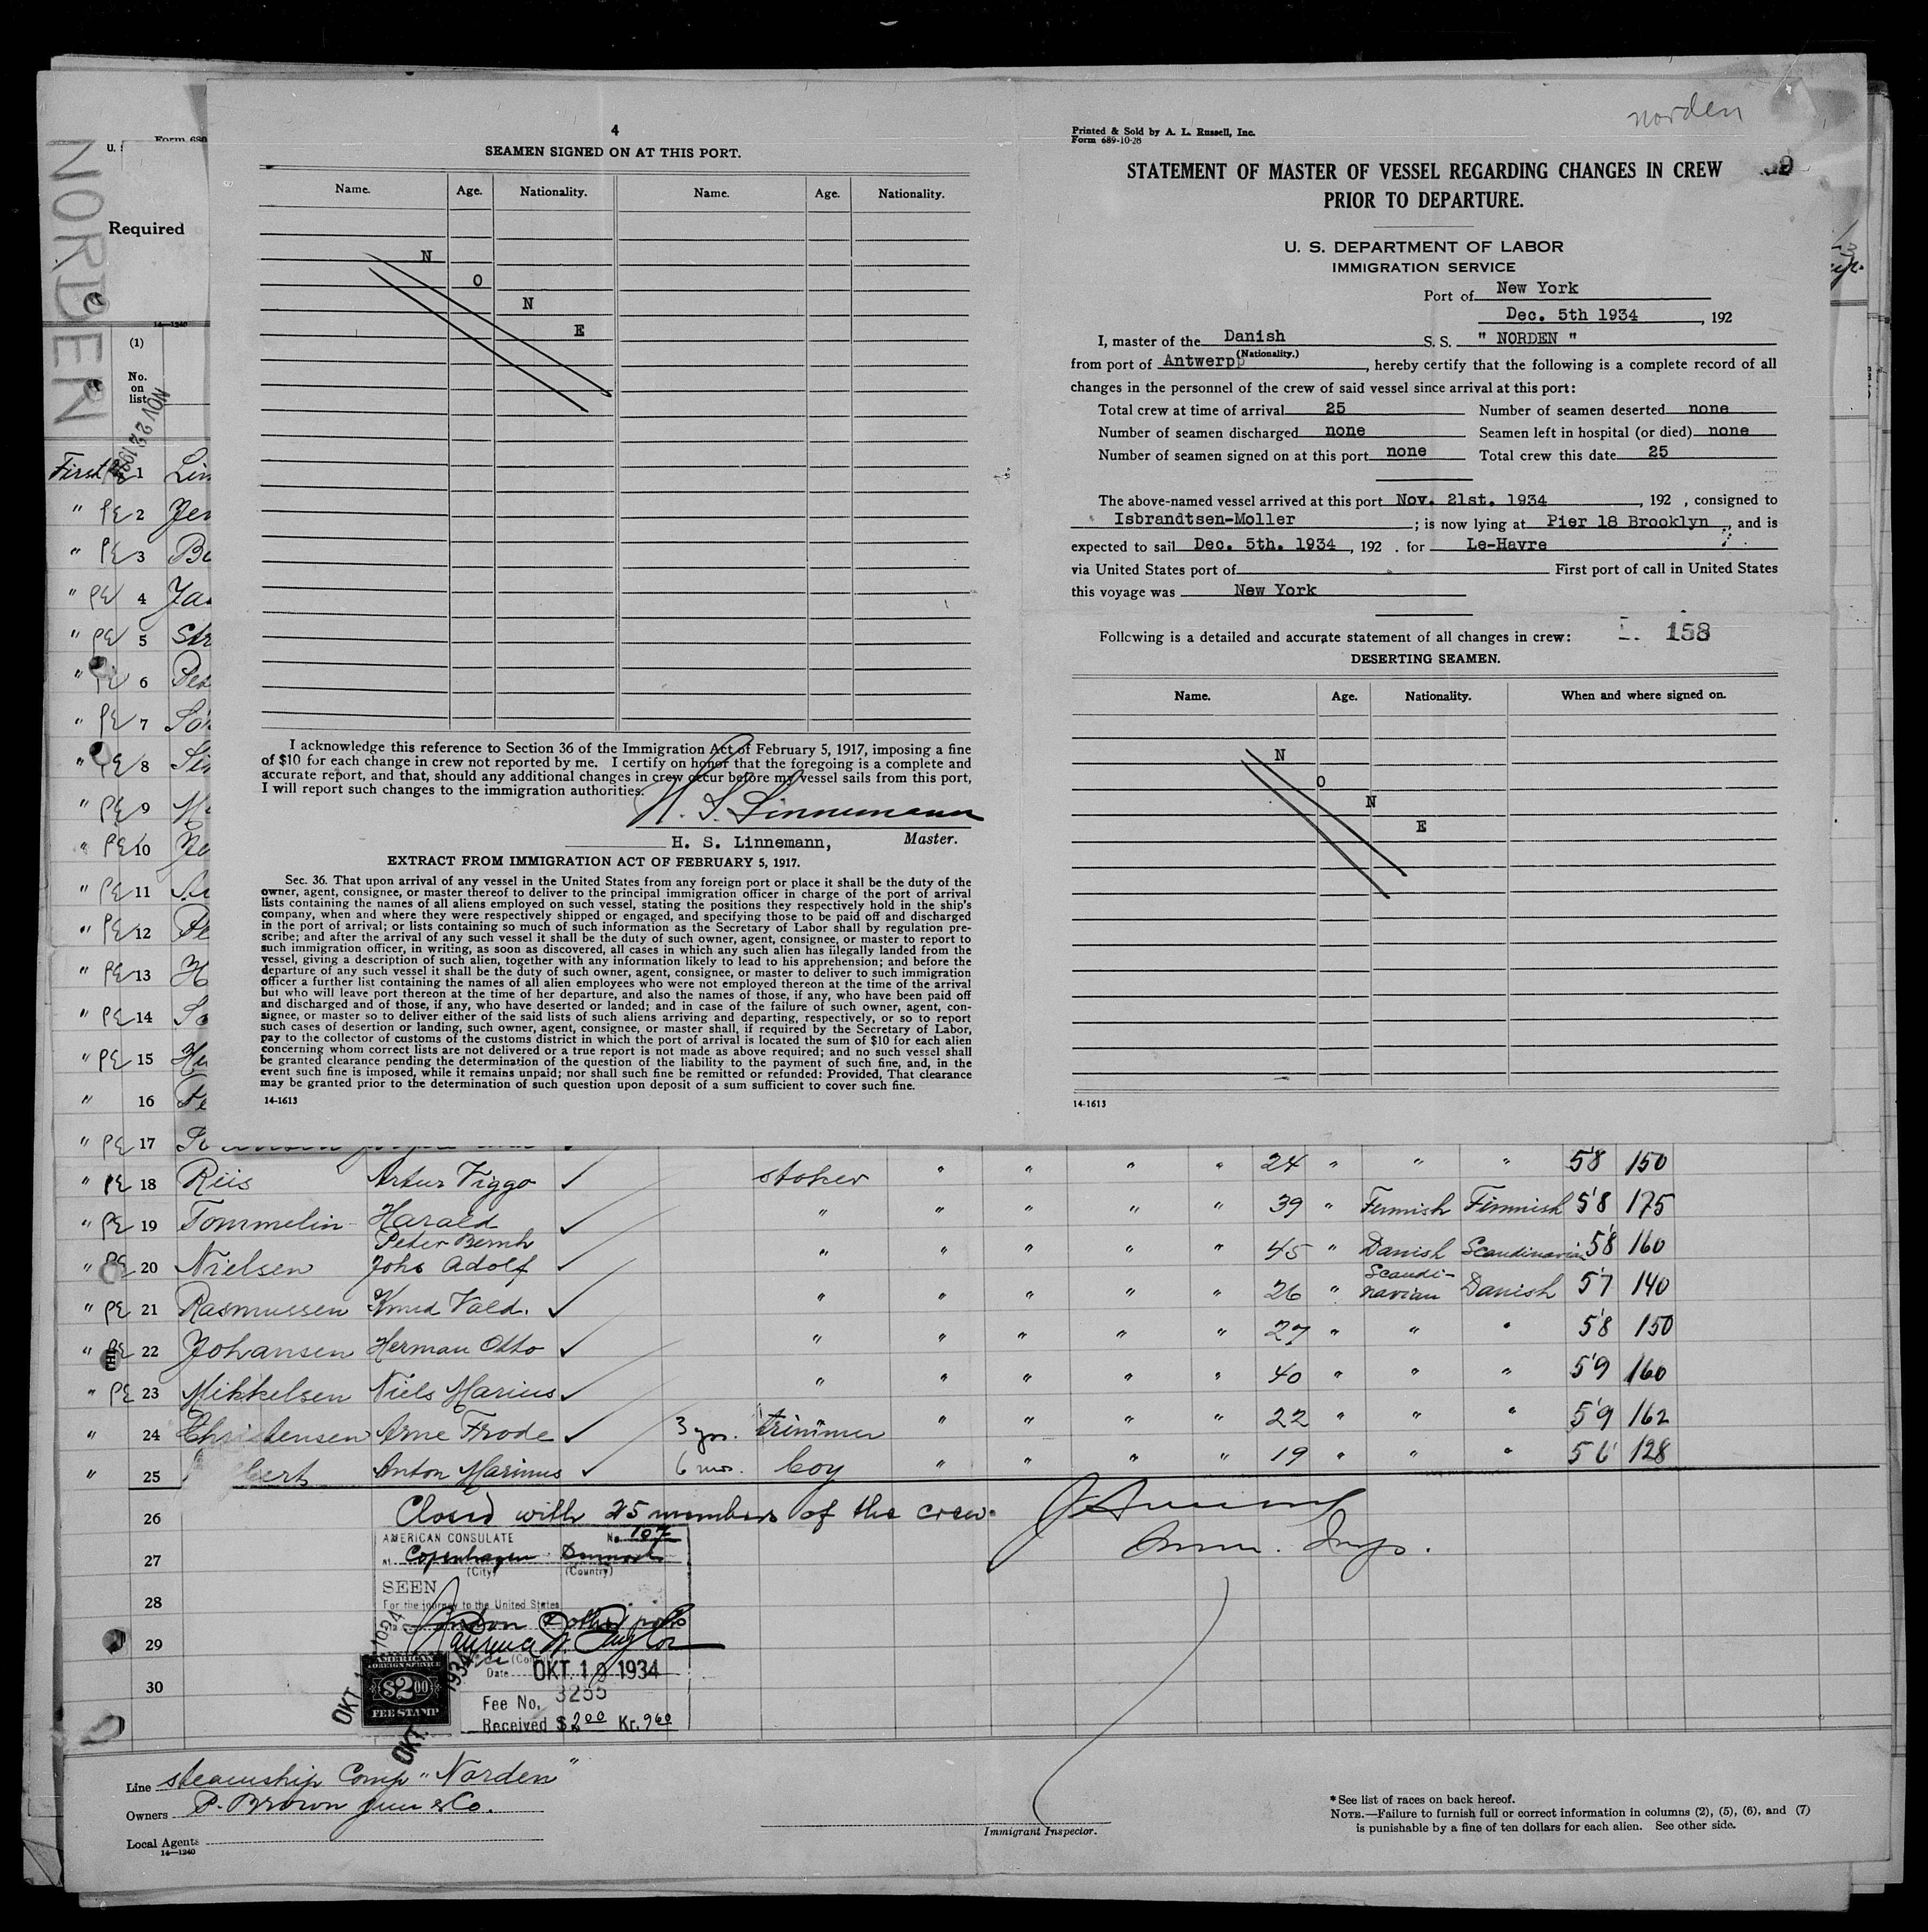 norden
4
SEAMEN SIGNED ON AT THIS PORT.
Name. Age. Nationality. Name. Age. Nationality.
N
O
N
E
I acknowledge this reference to Section 36 of the Immigration Act of February 5, 1917, imposing a fine
of $10 for each change in crew not reported by me. I certify on honor that the foregoing is a complete and
accurate report, and that, should any additional changes in crew occur before my vessel sails from this port,
I will report such changes to the immigration authorities.
H. S. Linnemann
H. S. Linnemann, Master.
EXTRACT FROM IMMIGRATION ACT OF FEBRUARY 5, 1917.
Sec. 36. That upon arrival of any vessel in the United States from any foreign port or place it shall be the duty of the
owner, agent, consignee, or master thereof to deliver to the principal immigration officer in charge of the port of arrival
lists containing the names of all aliens employed on such vessel, stating the positions they respectively hold in the ship's
company, when and where they were respectively shipped or engaged, and specifying those to be paid off and discharged
in the port of arrival; or lists containing so much of such information as the Secretary of Labor shall by regulation pre-
scribe; and after the arrival of any such vessel it shall be the duty of such owner, agent, consignee, or master to report to
such immigration officer, in writing, as soon as discovered, all cases in which any such alien has illegally landed from the
vessel, giving a description of such alien, together with any information likely to lead to his apprehension; and before the
departure of any such vessel it shall be the duty of such owner, agent, consignee, or master to deliver to such immigration
officer a further list containing the names of all alien employees who were not employed thereon at the time of the arrival
but who will leave port thereon at the time of her departure, and also the names of those, if any, who have been paid off
and discharged and of those, if any, who have deserted or landed; and in case of the failure of such owner, agent, con-
signee, or master so to deliver either of the said lists of such aliens arriving and departing, respectively, or so to report
such cases of desertion or landing, such owner, agent, consignee, or master shall, if required by the Secretary of Labor,
pay to the collector of customs of the customs district in which the port of arrival is located the sum of $10 for each alien
concerning whom correct lists are not delivered or a true report is not made as above required; and no such vessel shall
be granted clearance pending the determination of the question of the liability to the payment of such fine, and, in the
event such fine is imposed, while it remains unpaid; nor shall such fine be remitted or refunded: Provided, That clearance
may be granted prior to the determination of such question upon deposit of a sum sufficient to cover such fine.
14-1613
Printed & Sold by A. L. Russell, Inc.
Form 689-10-28
STATEMENT OF MASTER OF VESSEL REGARDING CHANGES IN CREW
PRIOR TO DEPARTURE.
U. S. DEPARTMENT OF LABOR
IMMIGRATION SERVICE
Port of New York
Dec. 5th 1934, 192
I, master of the Danish S. S. " NORDEN "
(Nationality.)
from port of Antwerp, hereby certify that the following is a complete record of all
changes in the personnel of the crew of said vessel since arrival at this port:
Total crew at time of arrival 25 Number of seamen deserted none
Number of seamen discharged none Seamen left in hospital (or died) none
Number of seamen signed on at this port none Total crew this date 25
The above-named vessel arrived at this port Nov. 21st. 1934, 192 , consigned to
Isbrandtsen-Moller; is now lying at Pier 18 Brooklyn, and is
expected to sail Dec. 5th. 1934, 192 . for Le-Havre
via United States port of First port of call in United States
this voyage was New York
Following is a detailed and accurate statement of all changes in crew: 158
DESERTING SEAMEN.
Name. Age. Nationality. When and where signed on.
N
O
N
E
14-1613
NORDEN
Form 689
Required
14—1240
(1)
No.
on
list
NOV 22 1934
First PE 1 Lin
" PE 2
" PE 3
" PE 4
" PE 5
" PE 6
" PE 7
" PE 8
" PE 9
" PE 10
" PE 11
" PE 12
" PE 13
" PE 14
" PE 15
" 16
" PE 17
24 " " " 5'8 150
" PE 18 Riis Artur Viggo ✓ stoker " " " " 39 " Finnish Finnish 5'8 175
" PE 19 Tommelin Harald ✓ " " " " " 45 " Danish Scandinavian 5'8 160
Peter Bernh
" PE 20 Nielsen Johs Adolf ✓ " " " " " 26 " Scandi-navian Danish 5'7 140
" PE 21 Rasmussen Knud Vald. ✓ " " " " " 27 " " " 5'8 150
" PE 22 Johansen Herman Otto ✓ " " " " " 40 " " " 5'9 160
" PE 23 Mikkelsen Niels Marius ✓ " " " " " 22 " " " 5'9 162
" 24 Christensen Arne Frode ✓ 3 yrs. trimmer " " " " 19 " " " 5'6 128
" 25 Anton Marinus ✓ 6 mos. boy
26 Closed with 25 members of the crew.
27
28
29
30
AMERICAN CONSULATE No. 107
At Copenhagen Denmark
(City) (Country)
SEEN
For the journey to the United States
Date OKT. 19 1934
Fee No. 3255
Received $2.00 Kr. 9.60
AMERICAN
FOREIGN SERVICE
$2.00
FEE STAMP
Line steamship Comp "Norden"
Owners P. Brown jun & Co.
Local Agents
14—1240
Immigrant Inspector.
* See list of races on back hereof.
NOTE.—Failure to furnish full or correct information in columns (2), (5), (6), and (7)
is punishable by a fine of ten dollars for each alien. See other side.